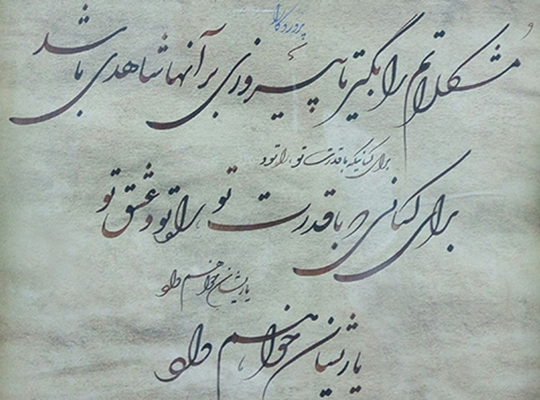 پروردگار
و مشکلاتم را بگیر تا پیروزی بر آنها شاهدی باشد
برای کسانیکه با قدرت تو، راه تو و
برای کسانی که با قدرت تو، راه تو و عشق تو
یاریشان خواهم داد
یاریشان خواهم داد